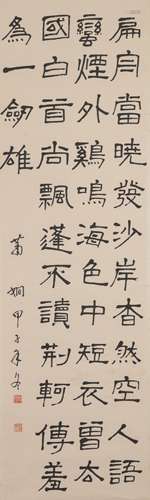 扁舟當曉發沙岸杳然空人語
蠻煙外鷄鳴海色中短衣曾去
國白首尚飄蓬不讀荊軻傳羞
為一劒雄
蕭嫻甲子年冬